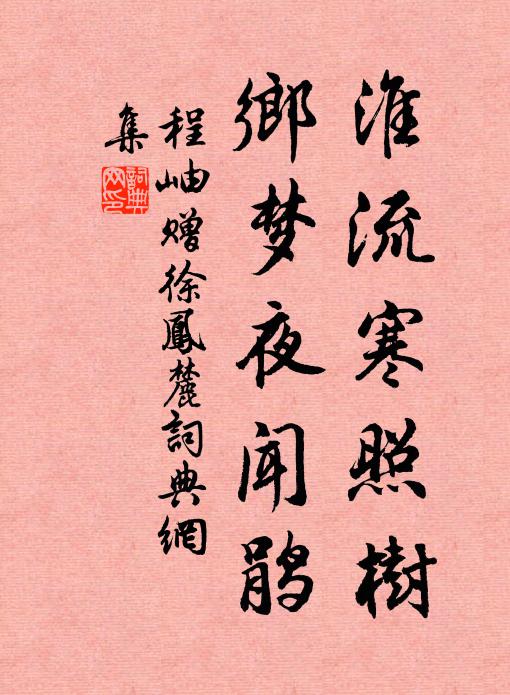 淮流寒照樹
鄉梦夜闻鹃
程岫赠徐鳳麓詞典網
集
詞典网印